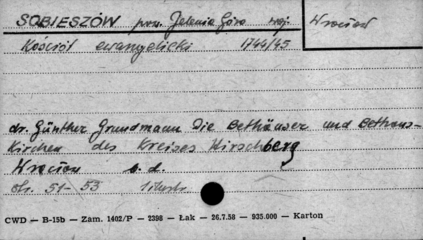 SOBIESZÓW pow. Jelenia Góra woj. Wrocław
Kościół ewangelicki 1744/45
dr. Günther Grundmann Die Bethäuser und Bethaus-
Kirchen des Kreises Hirschberg
Wrocław s. d.
str. 51-53 ilustr.
CWD — B-15b — Zam. 1402/P — 2398 — Łak — 26.7.58 — 935.000 — Karton